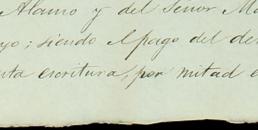 Alamo y del Señor Ma
yo; siendo el pago del de
ta escritura, por mitad e